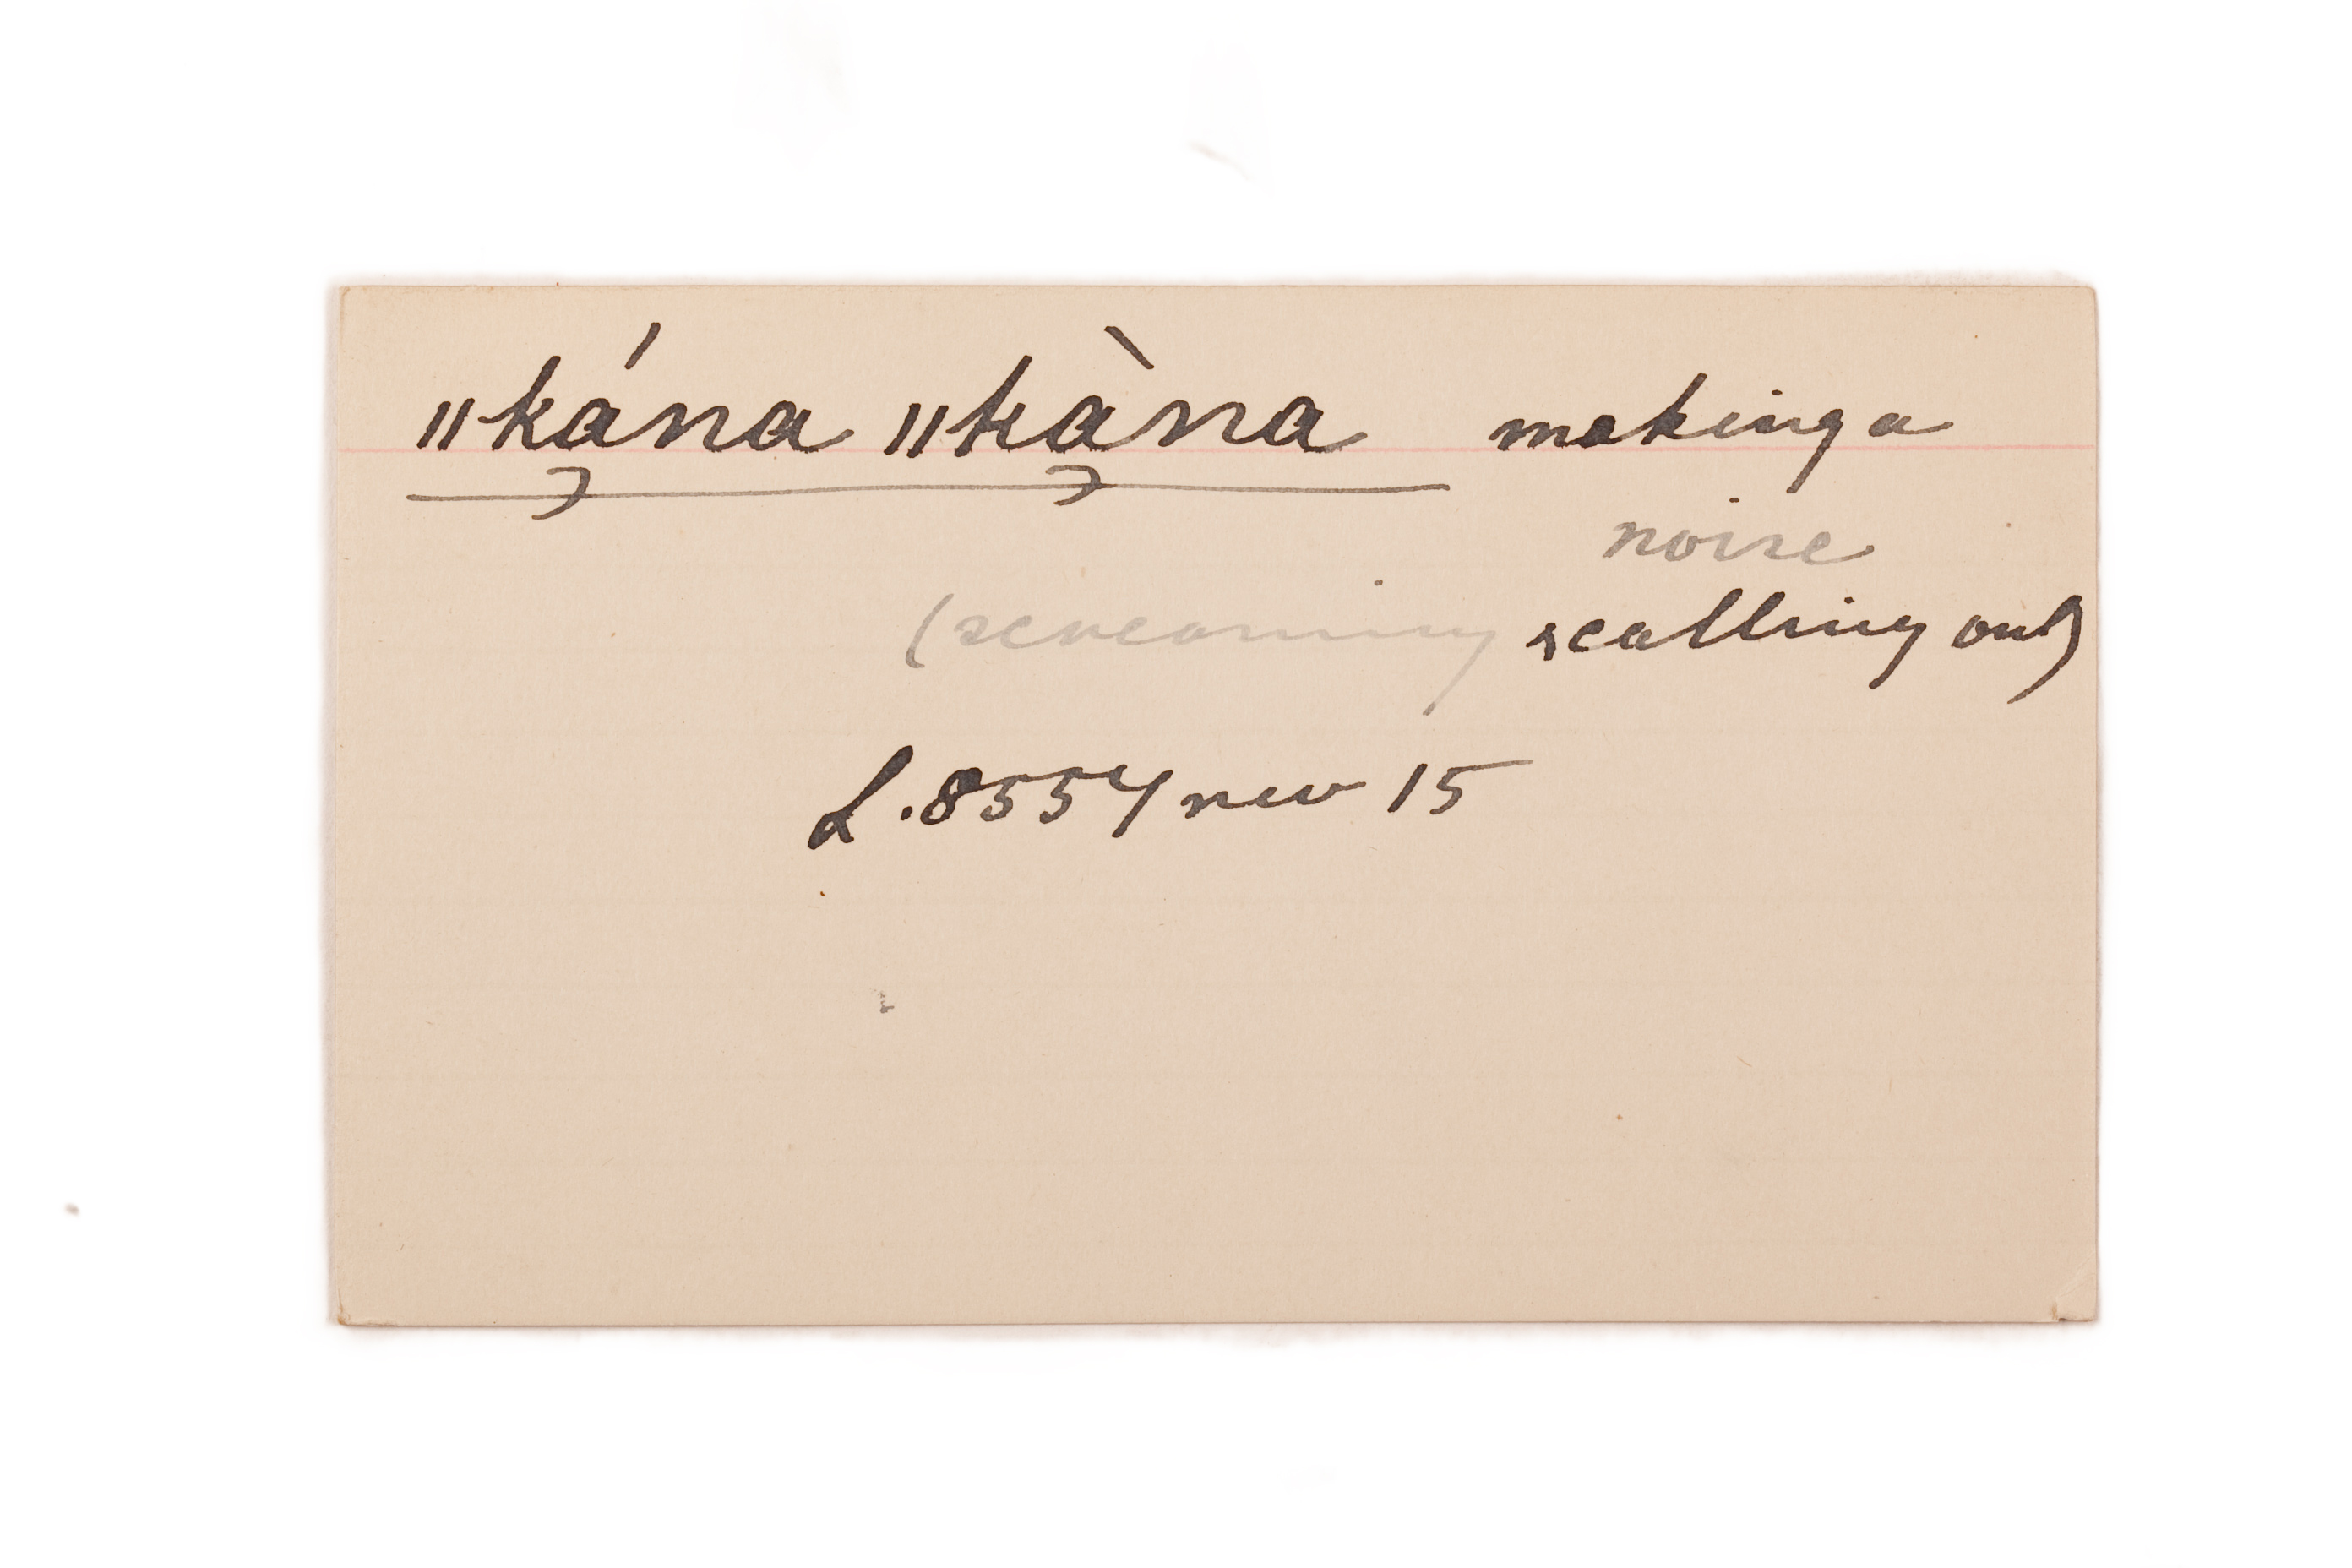 ǁká̡na ǁkà̡na making a
noise
(screaming & calling out)
L.8554 rev 15